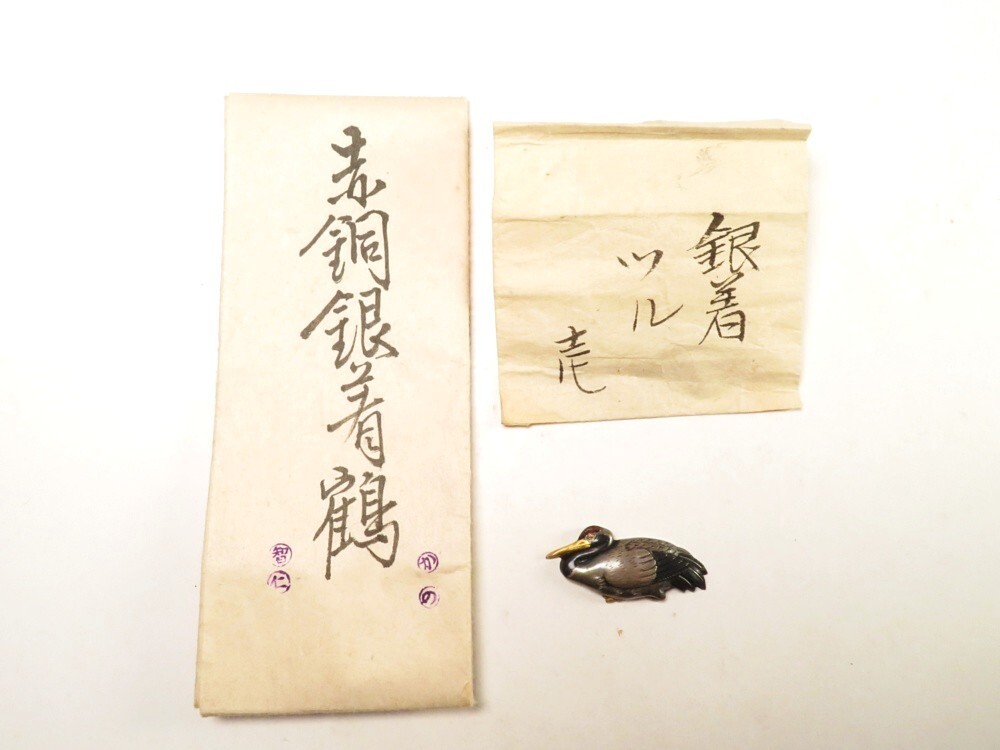 赤銅銀着鶴
かの
智仁
銀着
ツル